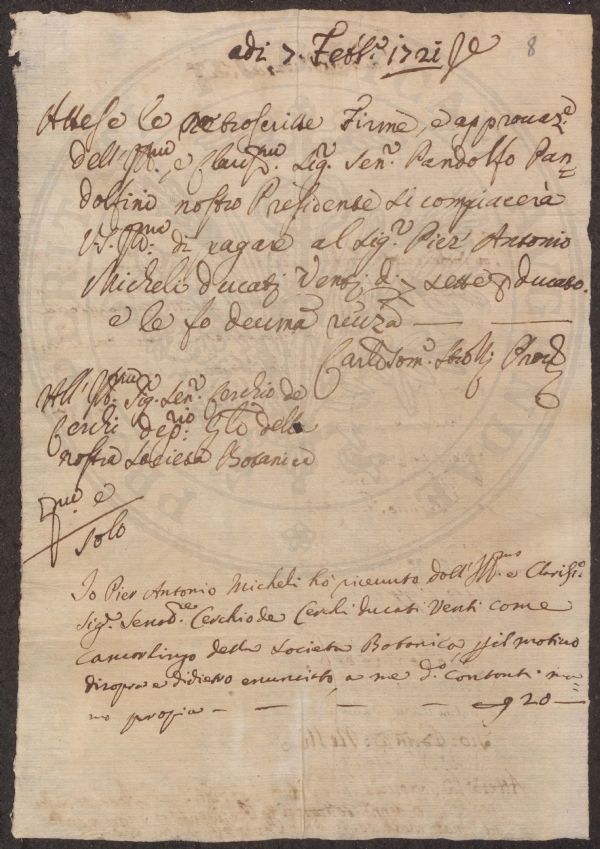 adi 7. Febb.º 1721 8
Attese le retroscritte Firme, e approuaz.e
dell' Ill.mo, e Clariss.mo Sig.r Sen.r Pandolfo Pan=
dolfini nostro Presidente si compiacerà
V.S. Ill.ma di pagare al Sig.r Pier Antonio
Micheli Ducati Venti d. 7 sette ducato.
e le fo decima
Sig.r Sen.r Cerchio de
Cerchi dep.rio Gle della
nostra Società Botanica
solo
Io Pier Antonio Micheli hò riceuuto dall' Ill.mo e Clariss.º
Sig.r Cerchio de Cerchi ducati Venti come
Camarlingo della Società Botanica il motiuo
disopra e didietro enunciato, a me d.º Contanti ma=
no propia — — — — — 20 —